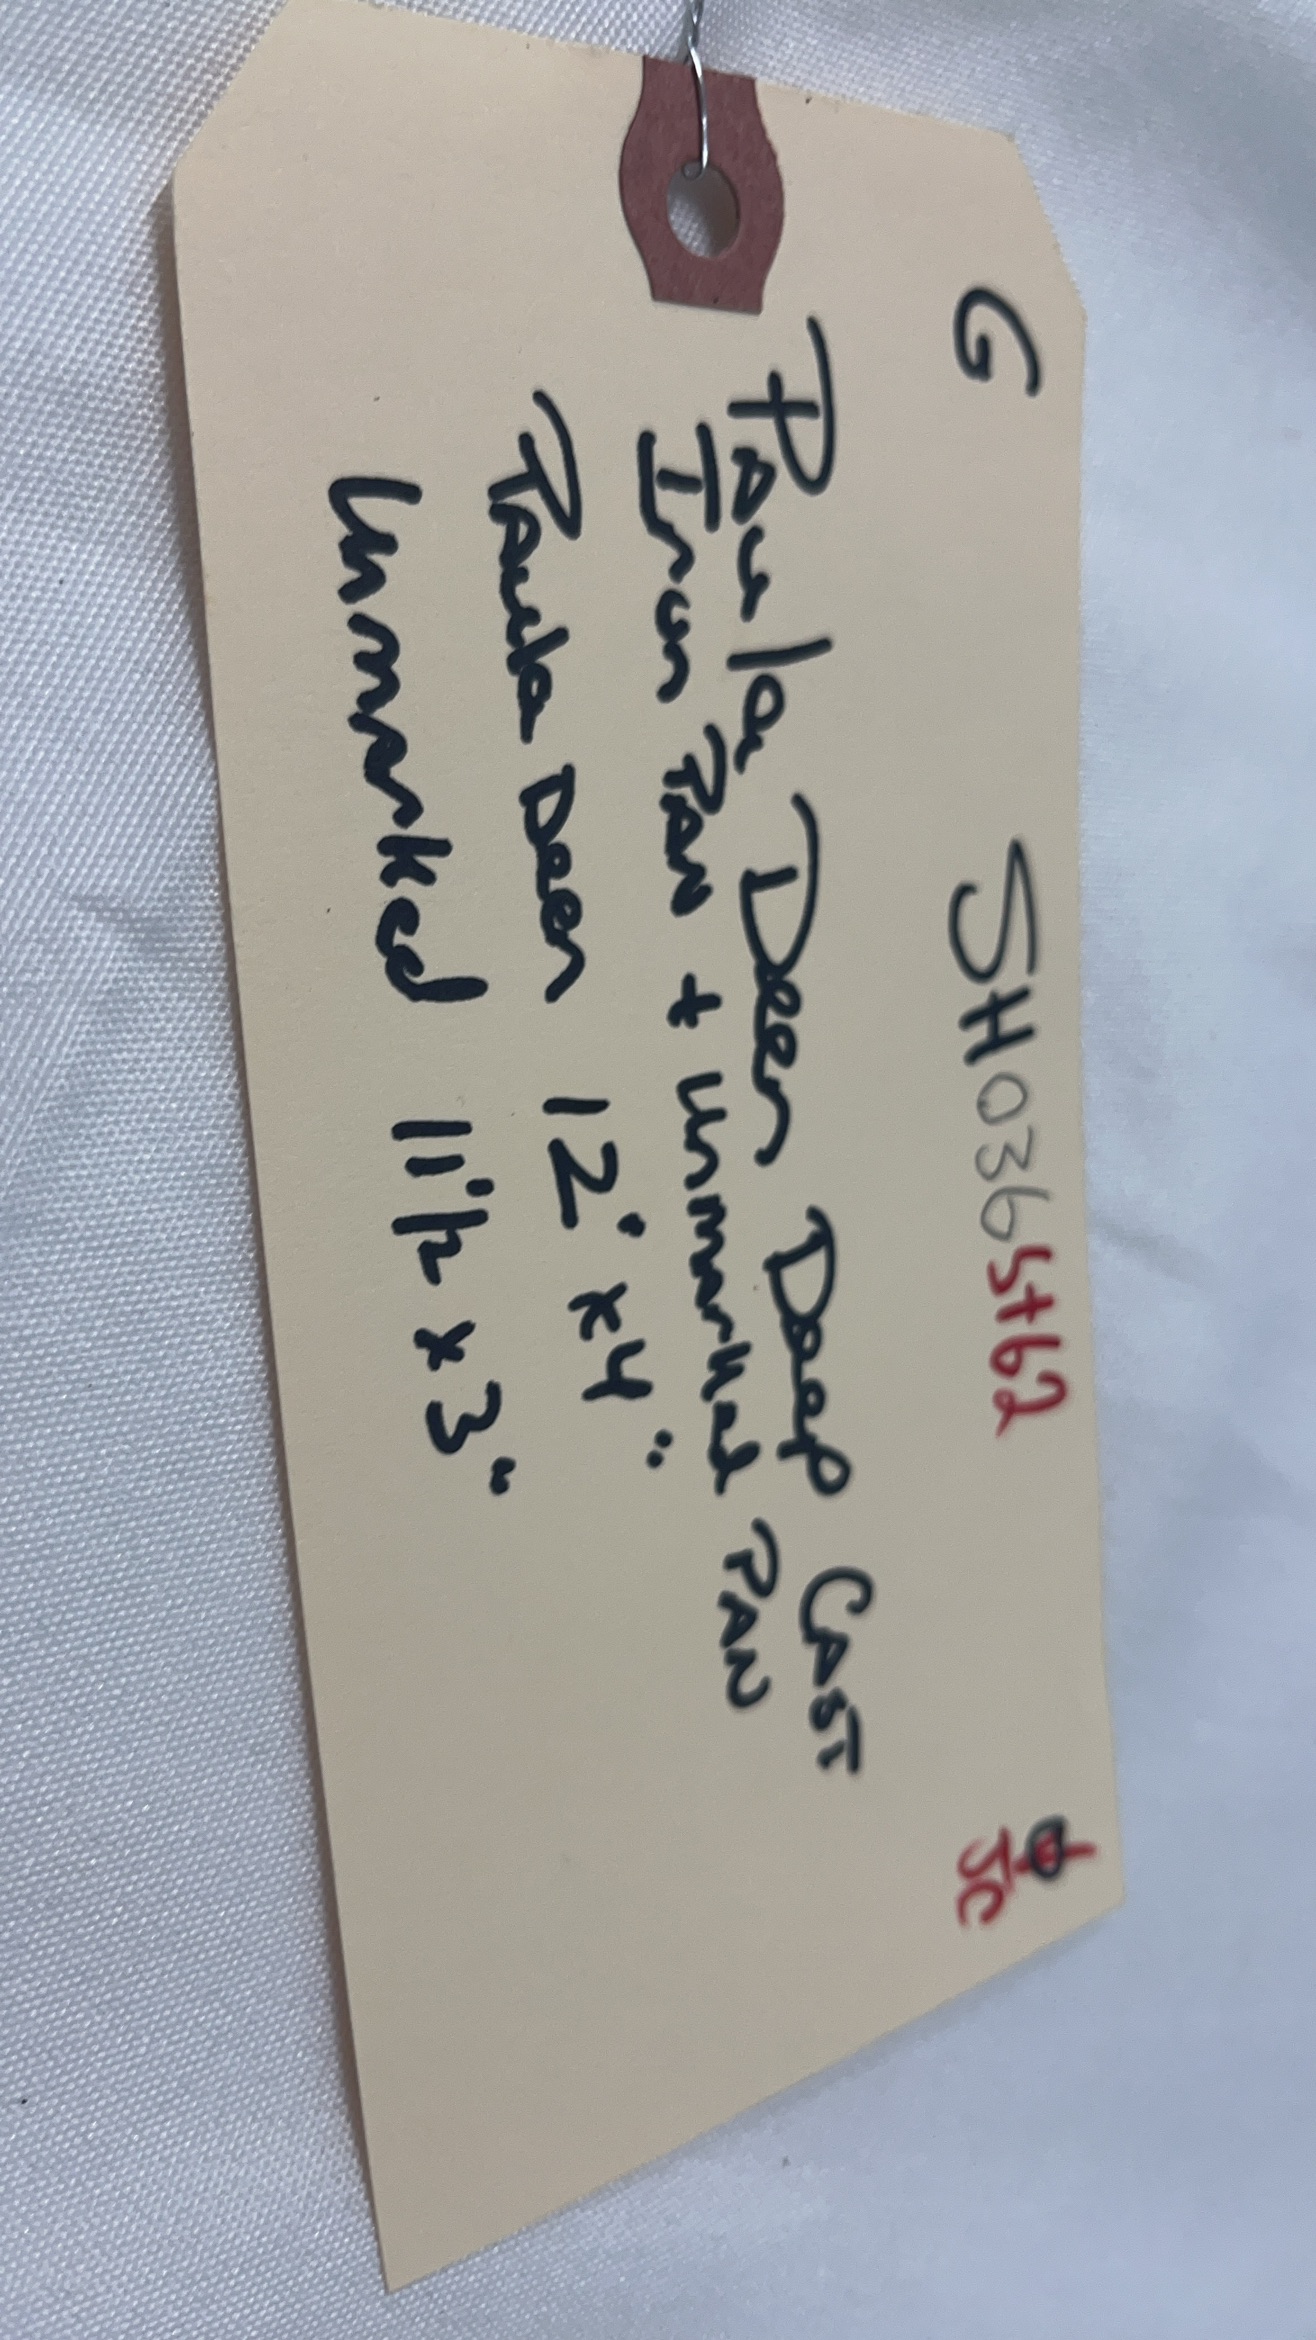 G SH036 St62
JC
Paula Deen Deep Cast
Iron Pan + Unmarked Pan
Paula Deen 12" x 4"
Unmarked 11 1/2 x 3"